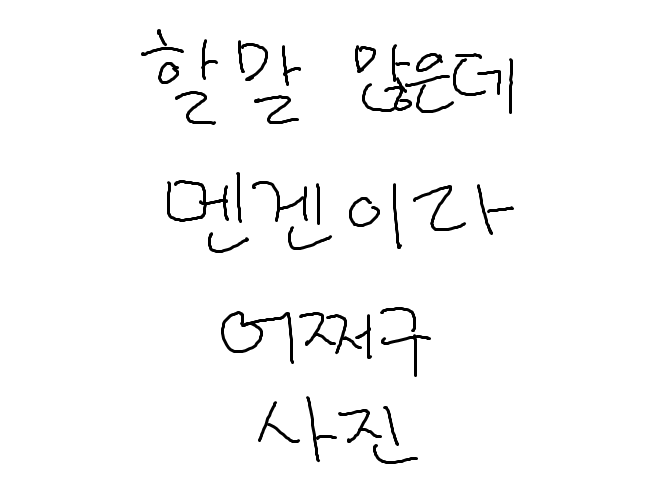 할말 많은데
멘겐이라
어쩌구
사진